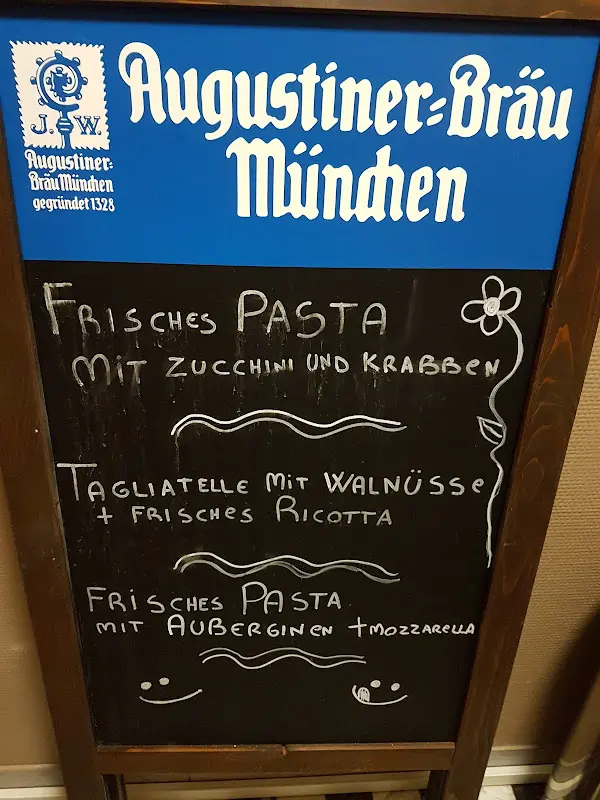 J. W.
Augustiner=
Bräu München
gegründet 1328
Augustiner=Bräu
München
FRISCHES PASTA
MIT ZUCCHINI UND KRABBEN
TAGLIATELLE MIT WALNÜSSE
+ FRISCHES RICOTTA
FRISCHES PASTA
MIT AUBERGINEN + MOZZARELLA